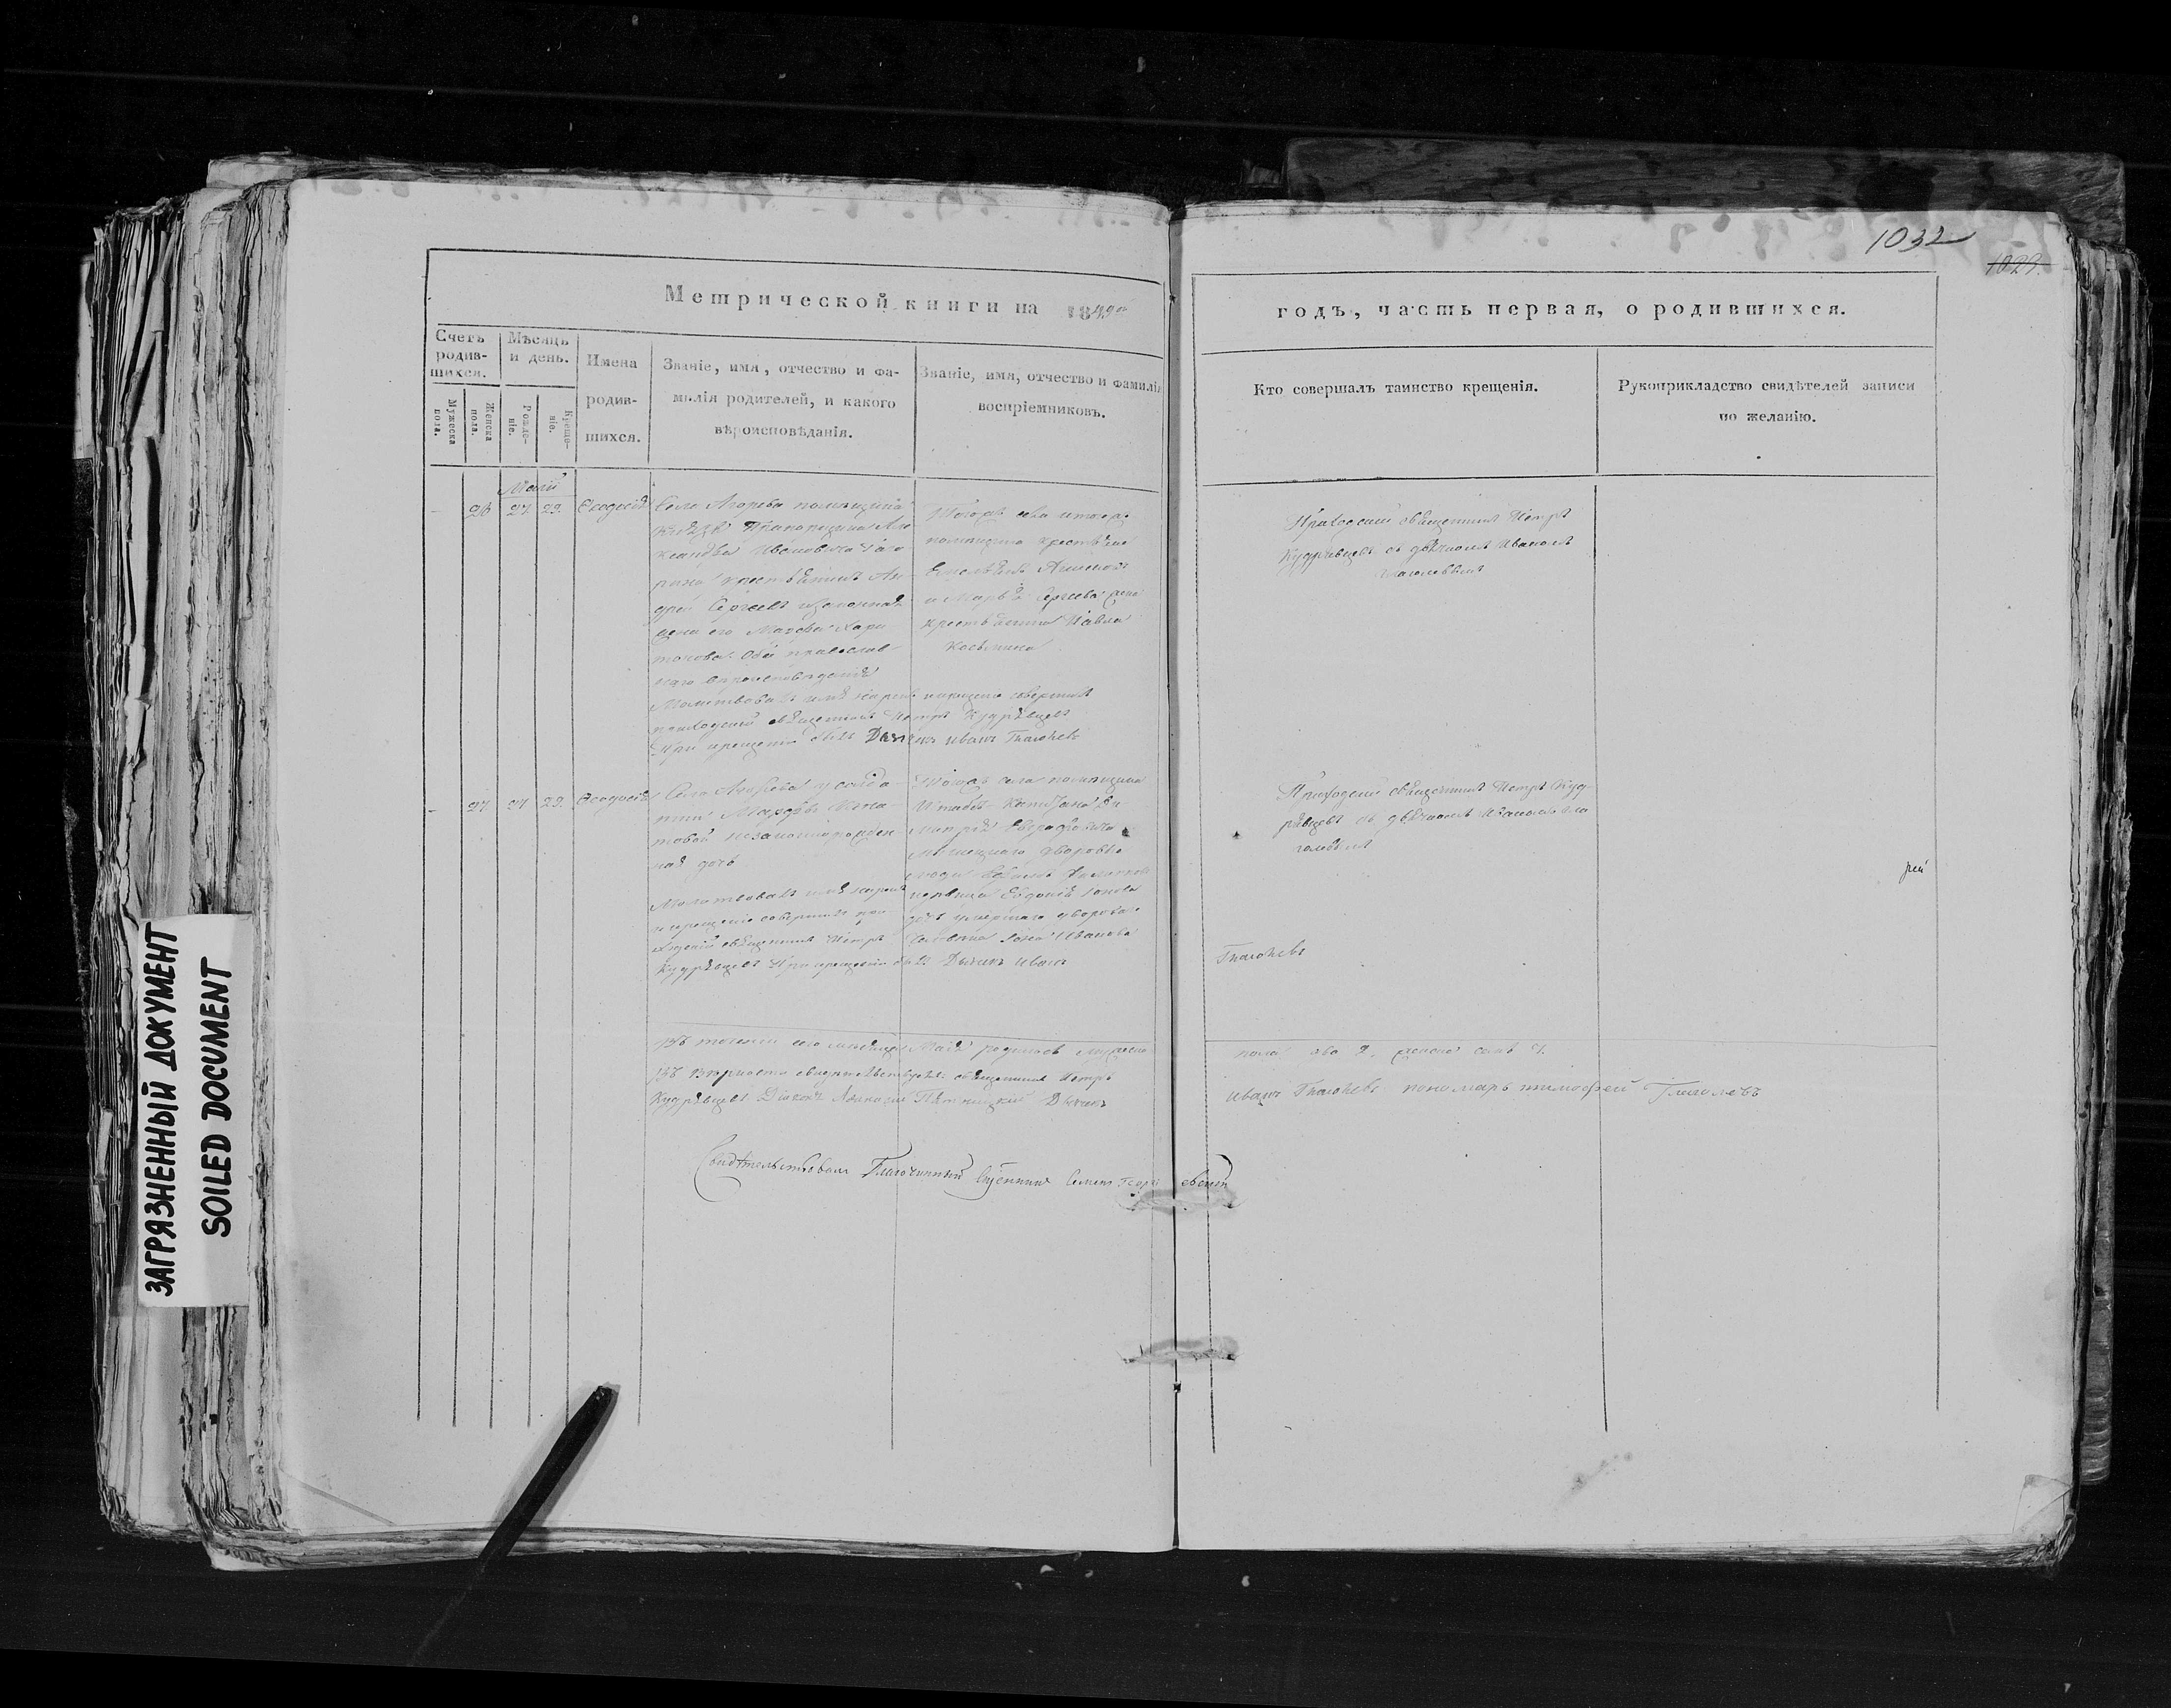 1032
1029.
Метрической книги на 1849й
годъ, часть первая, о родившихся.
Счетъ родив-шихся.
Мужеска пола.
Женска пола.
Мѣсяцъ и день.
Рожде-ніе.
Креще-ніе.
Имена
родив-
шихся.
Званіе, имя, отчество и фа-
милія родителей, и какого
вѣроисповѣданія.
Званіе, имя, отчество и фамилія
воспріемниковъ.
Кто совершалъ таинство крещенія.
Рукоприкладство свидѣтелей записи
по желанію.
Маій
26 27 29. Ѳеодосія
Села помѣщика
Ивановича
крестьянинъ Ан-
дрей Сергѣевъ и законная
жена его Марѳа Хари-
тонова. Оба православ-
наго вѣроисповѣданія
Молитвовалъ имя нарекъ крещеніе совершилъ
приходскій священникъ Петръ Кудрявцевъ
При крещеніи былъ Дьячекъ Иванъ Глаголевъ
Тогожъ села
помѣщика крестьянинъ
и Марья Сергѣева жена
крестьянина Павла
Косьмина
Приходскій священникъ Петръ
Кудрявцевъ съ дьячкомъ Иваномъ
Глаголевымъ
27 27 29. Ѳеодосія
Села у солдат-
ки Марѳы
незаконнорожден-
ная дочь
Молитвовалъ имя нарекъ
и крещеніе совершилъ при-
ходскій священникъ Петръ
Кудрявцевъ При крещеніи былъ Дьячекъ Иванъ
Глаголевъ
Тогожъ села помѣщика
Штабсъ-Капитана Ди-
митрія Евграфовича
двороваго
Евдокія Іонова
дочь умершаго двороваго
человѣка Іоны Иванова
Приходскій священникъ Петръ Куд-
рявцевъ съ дьячкомъ Иваномъ Гла-
голевымъ
рей
Въ теченіи сего мѣсяца Маія родилось мужеска
пола два 2. женска семь 7.
Въ вѣрности свидѣтельствуемъ: священникъ Петръ
Кудрявцевъ Діаконъ Аѳанасій Пятницкій Дьячекъ
Иванъ Глаголевъ пономарь тимоѳей Глаголевъ
Свидѣтельствовалъ Благочинный Сщенникъ Семенъ Георгіевскій
ЗАГРЯЗНЕННЫЙ ДОКУМЕНТ
SOILED DOCUMENT